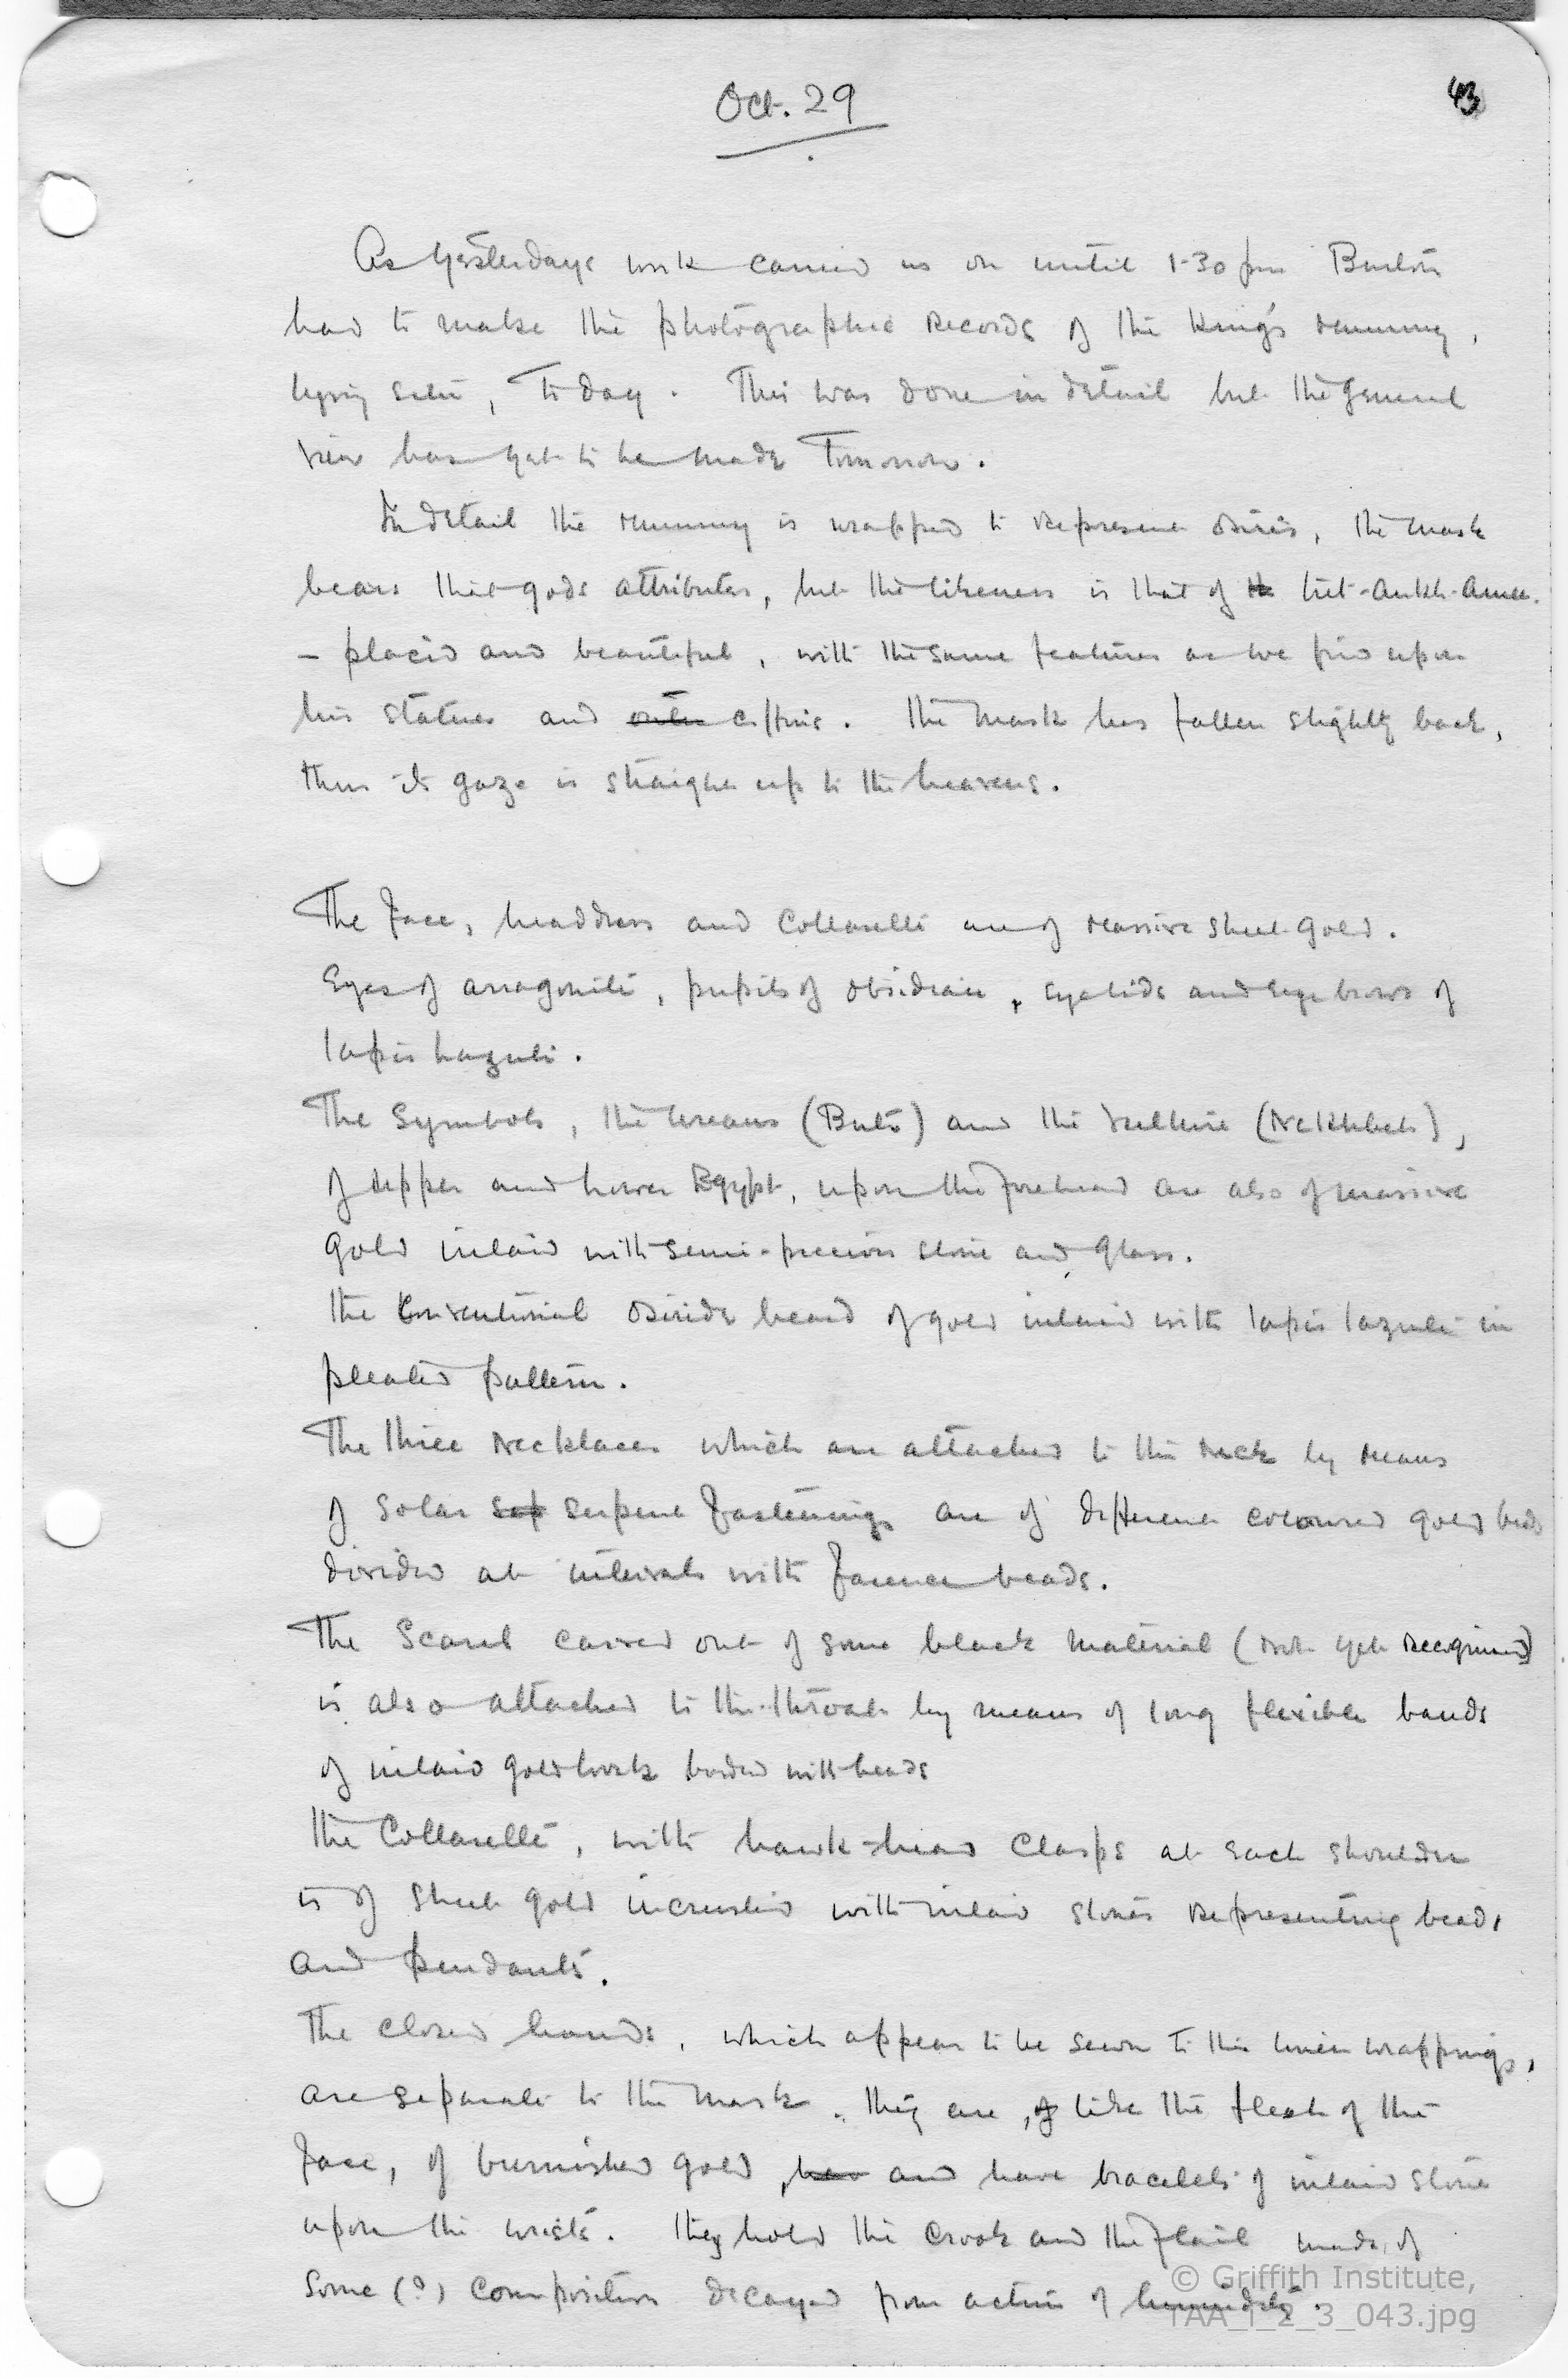 Oct. 29
43
As yesterdays work carried us on until 1-30 pm Burton
had to make the photographic records of the King's mummy,
lying situ, to day. This was done in detail but the general
view has yet to be made tomorrow.
In detail the mummy is wrapped to represent Osiris, the mask
bears that gods attributes, but the likeness is that of Tut-Ankh-Amen
- placid and beautiful, with the same features as we find upon
his statues and outer coffins. The mask has fallen slightly back,
thus its gaze is straight up to the heavens.
The face, headdress and collarette are of massive sheet gold.
Eyes of arragonite, pupils of obsidian, eyelids and eyebrows of
lapis lazuli.
The symbols, the Uraeus (Buto) and the Vulture (Nekhbet),
of Upper and Lower Egypt, upon the forehead are also of massive
gold inlaid with semi-precious stone and glass.
The Conventional Osiride beard of gold inlaid with lapis lazuli in
pleated pattern.
The three necklaces which are attached to the neck by means
of solar sep serpent fastenings are of different coloured gold beads
divided at intervals with faience beads.
The Scarab carved out of some black material (not yet recognised)
is also attached to the throat by means of long flexible bands
of inlaid goldwork borded with beads
The Collarette, with hawk-head clasps at each shoulder
is of sheet gold incrusted with inlaid stones representing beads
and pendants.
The closed hands, which appear to be sewn to the linen wrappings,
are separate to the mask. they are, of like the flesh of the
face, of burnished gold, hav and have bracelets of inlaid stone
upon the wrists. They hold the crook and the flail made of
some (?) composition decayed from action of humidity.
© Griffith Institute,
TAA_i_2_3_043.jpg